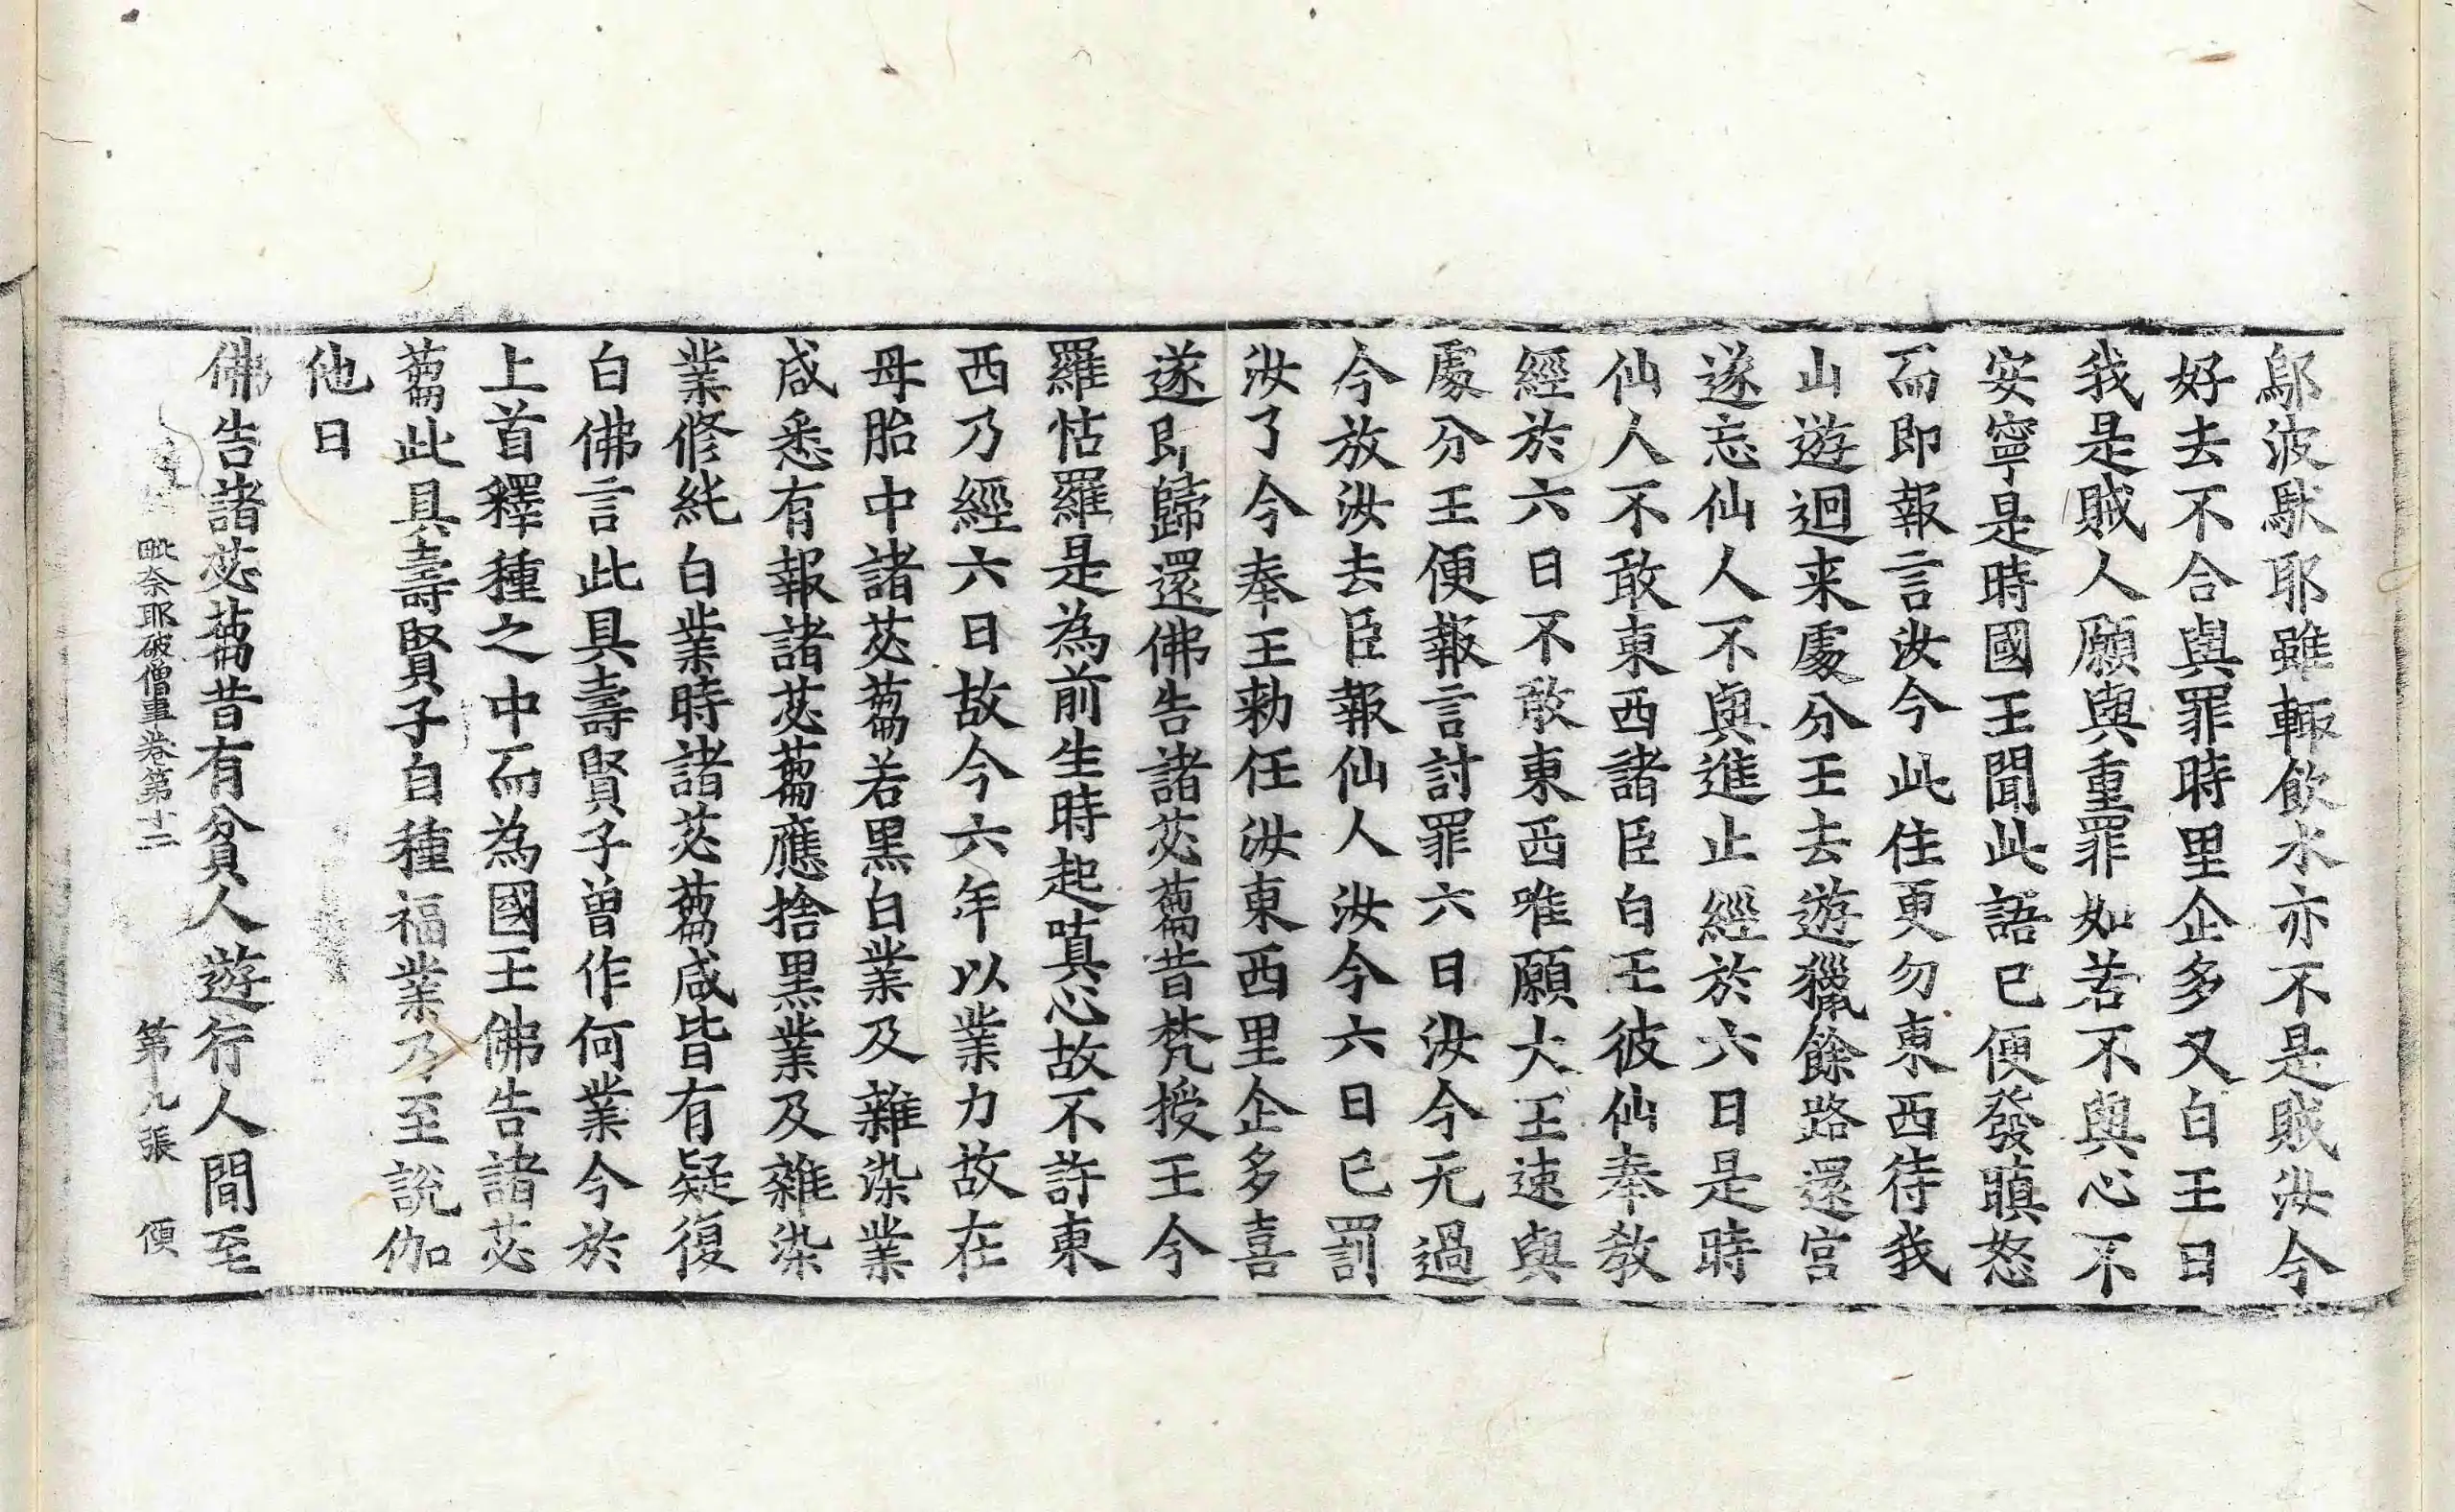 鄔波馱耶雖輙飮水亦不是賊汝今
好去不合與罪時里企多又白王曰
我是賊人願與重罪如若不與心不
安寧是時國王聞此語已便發瞋怒
而即報言汝今此住更勿東西待我
山遊迴来處分王去遊獵餘路還宮
遂忘仙人不與進止經於六日是時
仙人不敢東西諸臣白王彼仙奉教
經於六日不敢東西唯願大王速與
處分王便報言討罪六日汝今无過
今放汝去臣報仙人汝今六日已罰
汝了今奉王勑任汝東西里企多喜
遂即歸還佛告諸苾蒭昔梵授王今
羅怙羅是為前生時起嗔心故不許東
西乃經六日故今六年以業力故在
母胎中諸苾蒭若黒白業及雜染業
咸悉有報諸苾蒭應捨黒業及雜染
業修純白業時諸苾蒭咸皆有疑復
白佛言此具壽賢子曽作何業今於
上首釋種之中而為國王佛告諸苾
蒭此具壽賢子自種福業乃至說伽
他曰
佛告諸苾蒭昔有貧人遊行人間至
毗奈耶破僧事卷第十二 第九張 便